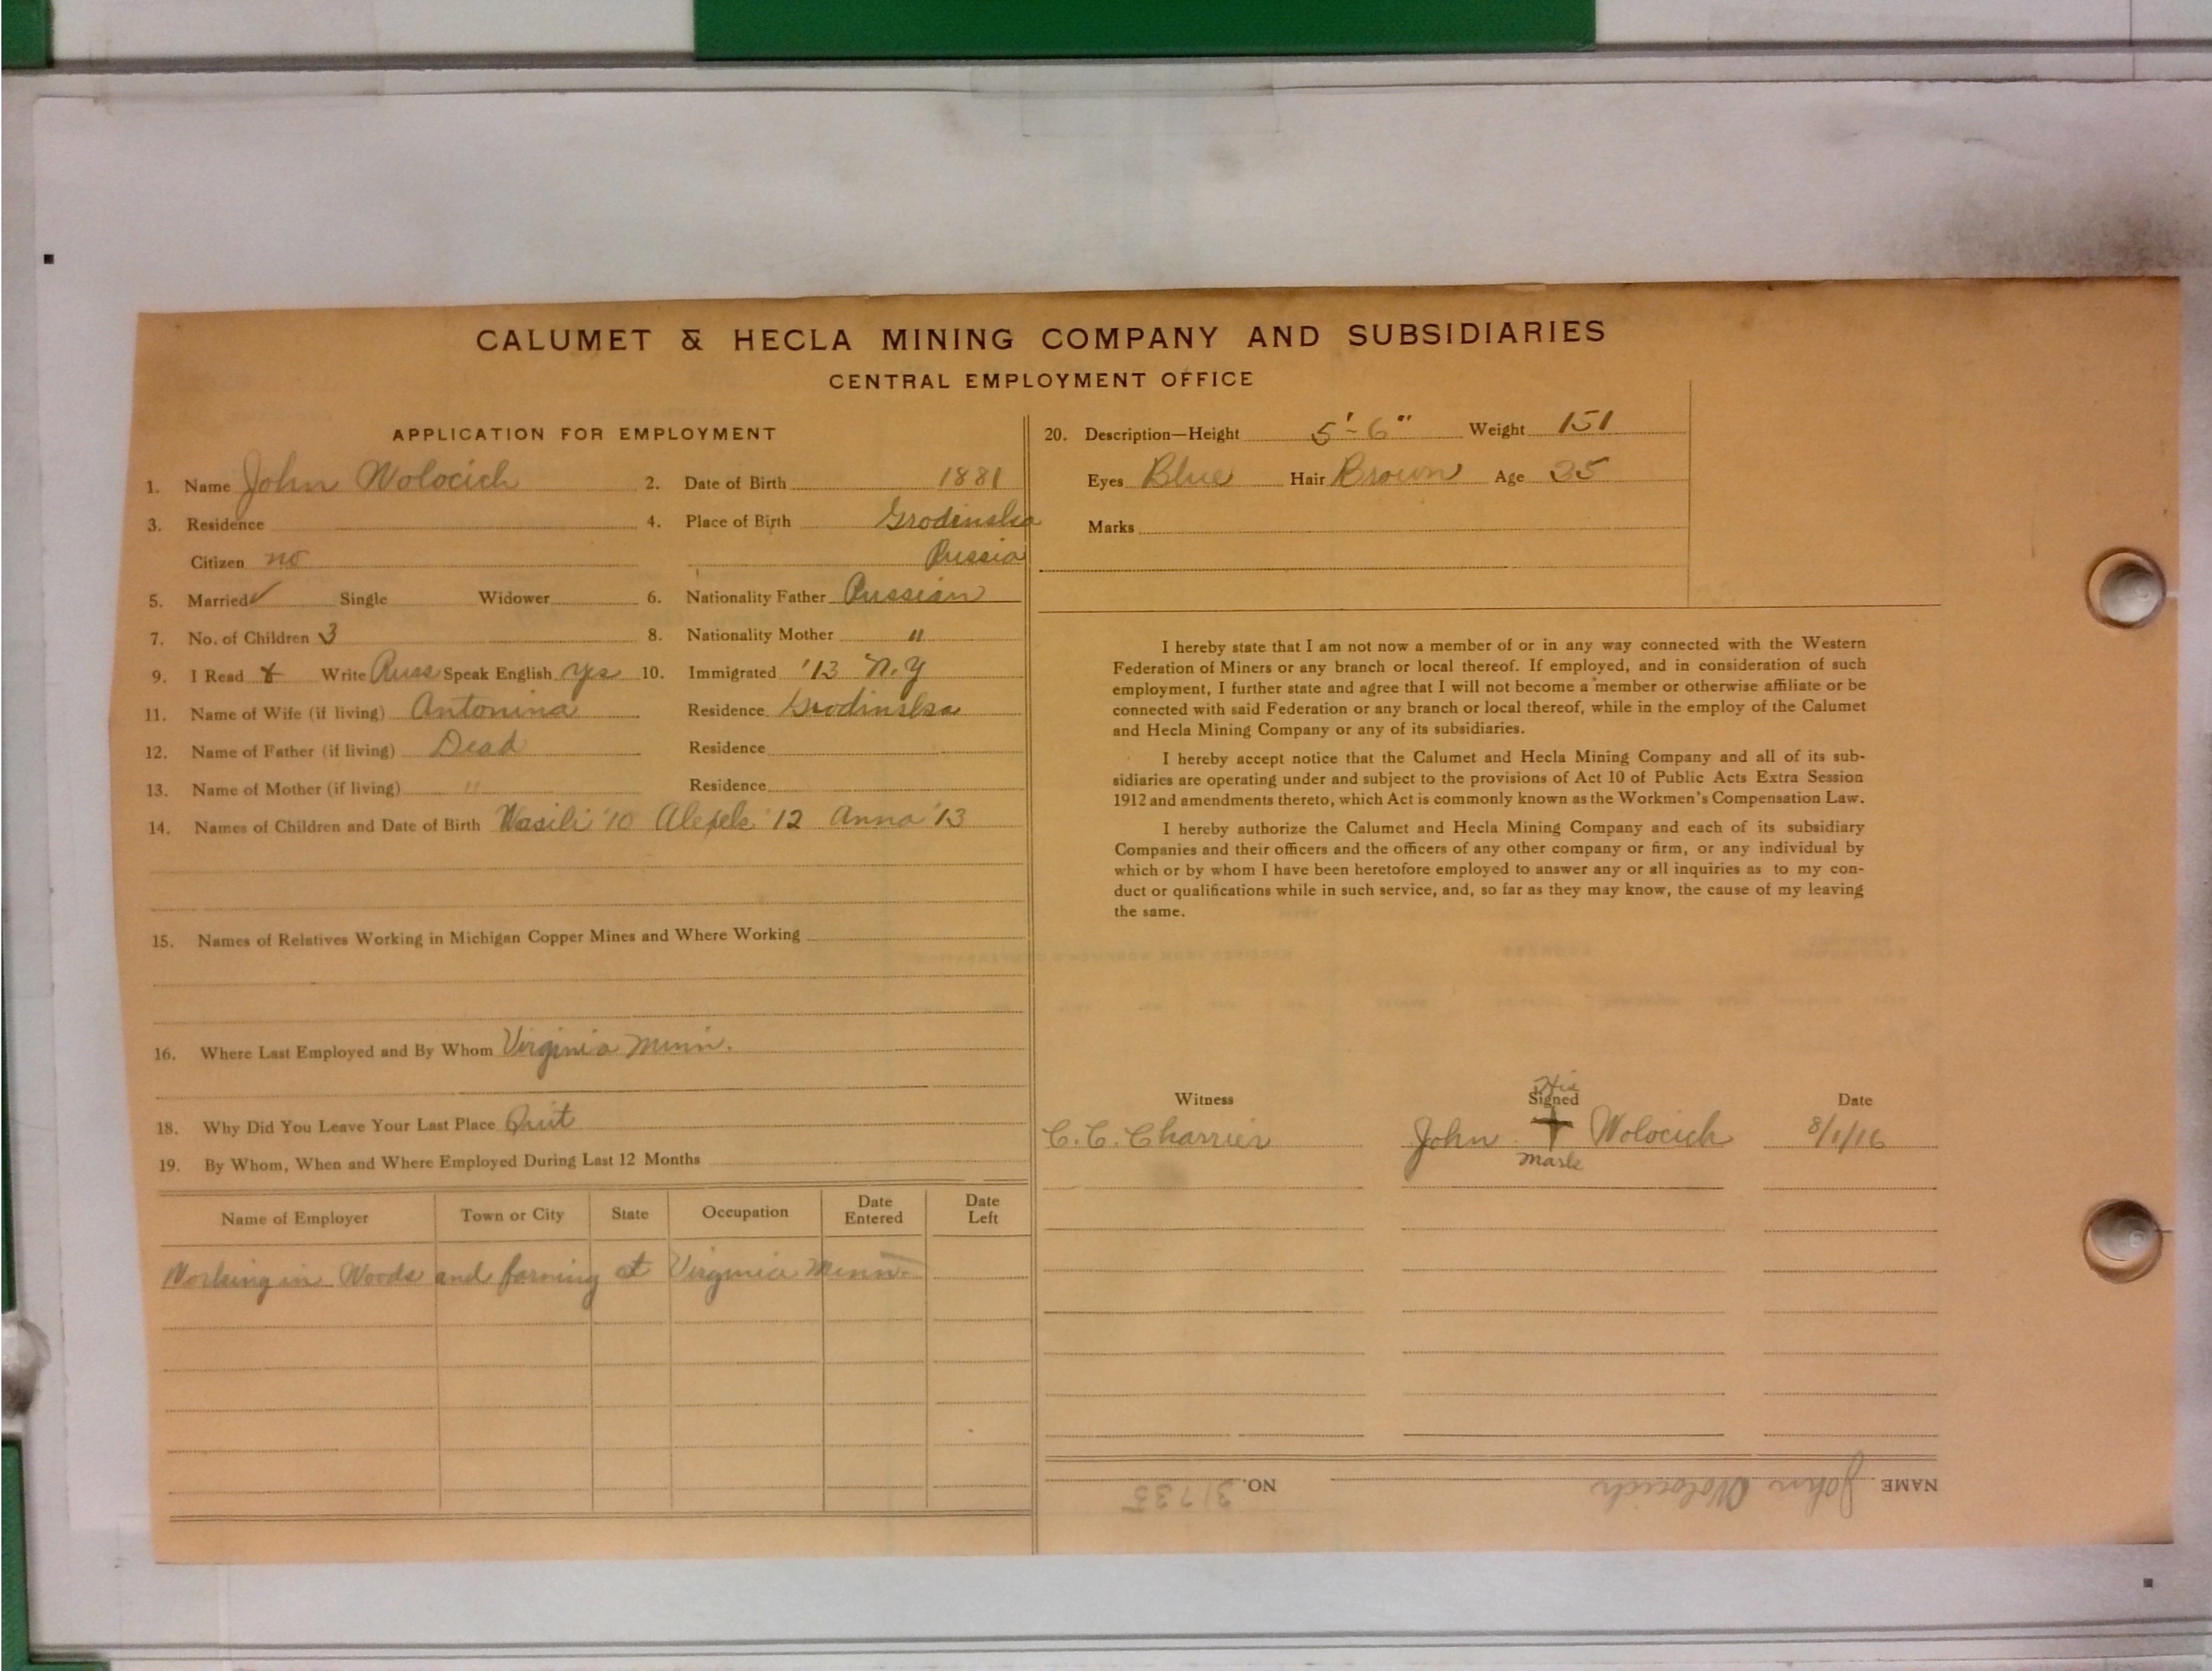 CALUMET & HECLA MINING COMPANY AND SUBSIDIARIES
CENTRAL EMPLOYMENT OFFICE
APPLICATION FOR EMPLOYMENT
1. Name John Wolocich 2. Date of Birth 1881
3. Residence 4. Place of Birth Grodinska
Citizen no Russia
5. Married ✓ Single Widower 6. Nationality Father Russian
7. No. of Children 3 8. Nationality Mother "
9. I Read & Write Russ Speak English yes 10. Immigrated '13 N.Y
11. Name of Wife (if living) Antonina Residence Grodinska
12. Name of Father (if living) Dead Residence
13. Name of Mother (if living) " Residence
14. Names of Children and Date of Birth Wasili '10 '12 Anna '13
15. Names of Relatives Working in Michigan Copper Mines and Where Working
16. Where Last Employed and By Whom Virginia Minn.
18. Why Did You Leave Your Last Place Quit
19. By Whom, When and Where Employed During Last 12 Months
Name of Employer Town or City State Occupation Date Entered Date Left
Working in Woods and farming at Virginia Minn.
20. Description—Height 5'-6" Weight 151
Eyes Blue Hair Brown Age 35
Marks
I hereby state that I am not now a member of or in any way connected with the Western
Federation of Miners or any branch or local thereof. If employed, and in consideration of such
employment, I further state and agree that I will not become a member or otherwise affiliate or be
connected with said Federation or any branch or local thereof, while in the employ of the Calumet
and Hecla Mining Company or any of its subsidiaries.
I hereby accept notice that the Calumet and Hecla Mining Company and all of its sub-
sidiaries are operating under and subject to the provisions of Act 10 of Public Acts Extra Session
1912 and amendments thereto, which Act is commonly known as the Workmen's Compensation Law.
I hereby authorize the Calumet and Hecla Mining Company and each of its subsidiary
Companies and their officers and the officers of any other company or firm, or any individual by
which or by whom I have been heretofore employed to answer any or all inquiries as to my con-
duct or qualifications while in such service, and, so far as they may know, the cause of my leaving
the same.
His
Witness Signed Date
C. C. Charrier John + Wolocich 8/1/16
mark
NAME John Wolocich NO. 31735